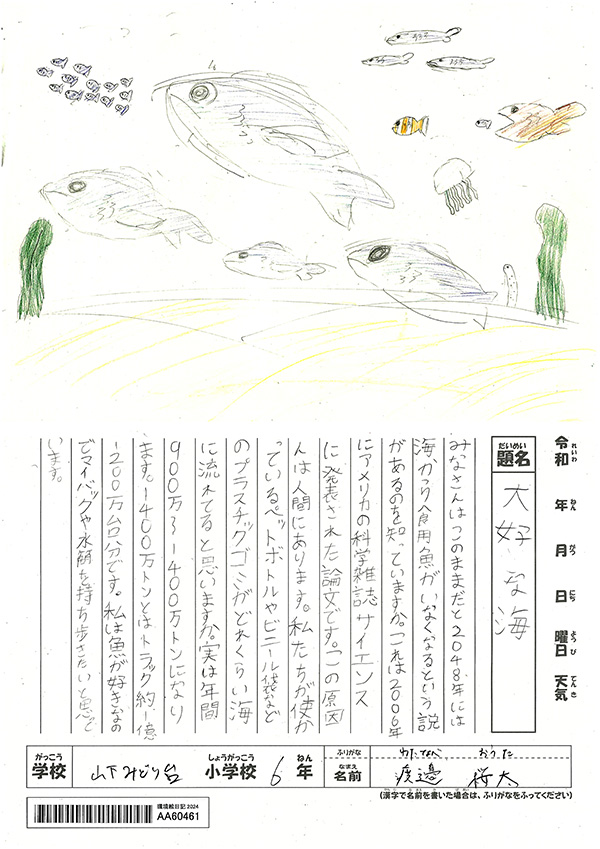 令和 年 月 日 曜日 天気
れいわ ねん がつ にち ようび てんき
だいめい
題名 大好きな海
みなさんはこのままだと2048年には
海から食用魚がいなくなるという説
があるのを知っていますか。これは2006年
にアメリカの科学雑誌サイエンス
に発表された論文です。この原因
んは人間にあります。私たちが使か
っているペットボトルやビニール袋など
のプラスチックゴミがどれくらい海
に流れてると思いますか。実は年間
900万〜1400万トンになり
ます。1400万トンとはトラック約1億
1200万台分です。私は魚が好きなの
でマイバックや水筒を持ち歩きたいと思って
います。
がっこう しょうがっこう ねん ふりがな わたなべ おうた
学校 山下みどり台 小学校 6年 なまえ 名前 渡邊 桜太
(漢字で名前を書いた場合は、ふりがなをふってください)
環境絵日記2024
AA60461